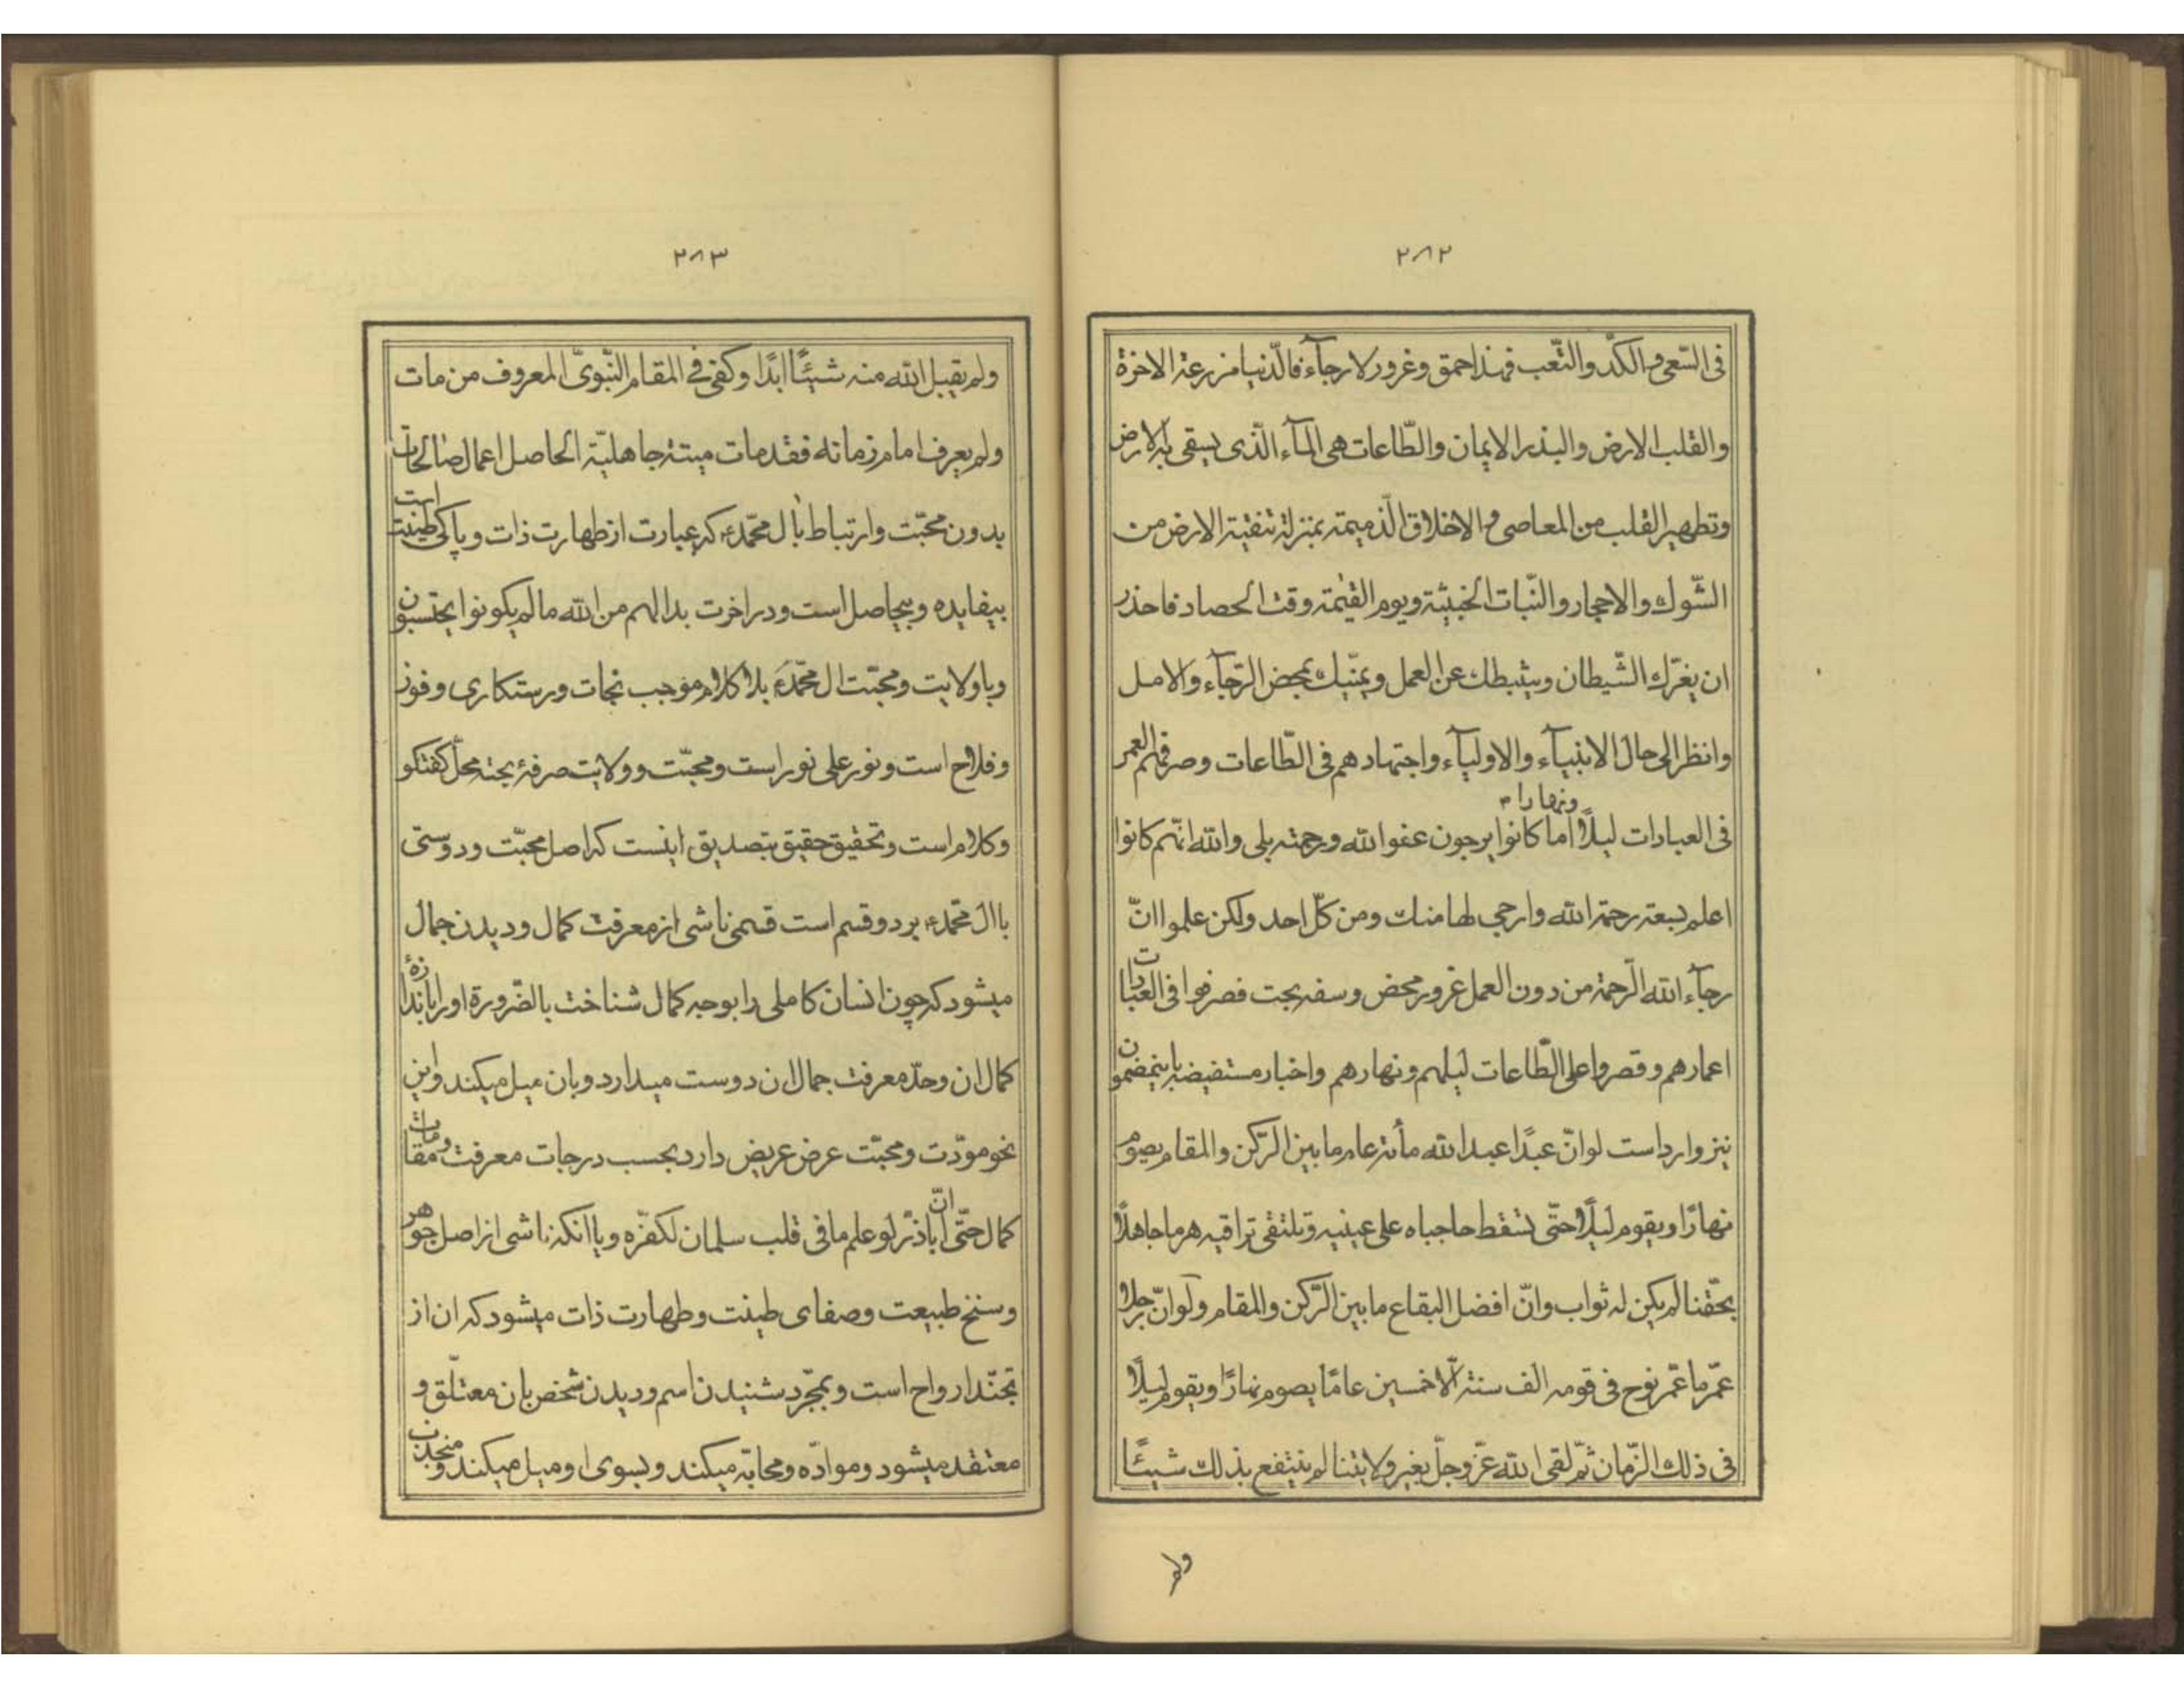 ۲۸۲
فی السّعی و الکدّ والتّعب فهذا حمق وغرور لا رجآء فالدّنیا مزرعة الاخرة
والقلب الارض والبذر الایمان والطّاعات هی المآء الّذی یسقی به الارض
وتطهیر القلب من المعاصی و الاخلاق الذّمیمة بمنزلة تنقیة الارض من
الشّوك والاحجار والنّبات الخبیثة ویوم القیٰمة وقت الحصاد فاحذر
ان یغرّك الشّیطان ویثبطك عن العمل ویمنّیك بمحض الرّجآء والامل
وانظر الی حال الانبیآء والاولیآء واجتهادهم فی الطّاعات وصرفهم العمر
فی العبادات لیلًا ونهارا اما کانوا یرجون عفو الله ورحمته بلی والله انّهم کانوا
اعلم بسعة رحمة الله وارجی لها منك ومن کلّ احد ولکن علموا انّ
رجآء الله الرّحمة من دون العمل غرور محض وسفه بحت فصرفوا فی العبادات
اعمارهم وقصروا علی الطّاعات لیلهم ونهارهم واخبار مستفیضه باینمضمون
نیز وارد است لو انّ عبدًا عبد الله مأة عام ما بین الرّکن والمقام یصوم
نهارًا ویقوم لیلًا حتّی تسقط حاجباه علی عینیه وتلتقی تراقیه هرما جاهلًا
بحقّنا لم یکن له ثواب وانّ افضل البقاع ما بین الرّکن والمقام ولو انّ رجلا
عمّر ما عمّر نوح فی قومه الف سنة الّا خمسین عامًا یصوم نهارًا ویقوم لیلًا
فی ذلك الزّمان ثمّ لقی الله عزّ وجلّ بغیر ولایتنا لم ینتفع بذلك شیئًا
ولم
۲۸۳
ولم یقبل الله منه شیئًا ابدًا وکفی فی المقام النّبویّ المعروف من مات
ولم یعرف امام زمانه فقد مات میتة جاهلیّة الحاصل اعمال صالحات
بدون محبّت وارتباط بال محمّد ع که عبارت از طهارت ذات وپاکی طینت است
بیفایده وبیحاصل است ودر اخرت بدا لهم من الله ما لم یکونوا یحتسبون
وباولایت ومحبّت ال محمّد ع بلا کلام موجب نجات ورستکاری وفوز
وفلاح است ونور علی نور است ومحبّت وولایت صرفهٔ بحته محلّ کفتکو
وکلام است وتحقیق حقیق بتصدیق اینست که اصل محبّت ودوستی
باال محمّد ع بر دو قسم است قسمی ناشی از معرفت کمال ودیدن جمال
میشود که چون انسان کاملی را بوجه کمال شناخت بالضّرورة اورا باندازهٔ
کمال ان وحدّ معرفت جمال ان دوست میدارد وبان میل میکند واین
نحو مودّت ومحبّت عرض عریض دارد بحسب درجات معرفت ومقامات
کمال حتّی انّ اباذر لو علم ما فی قلب سلمان لکفّره ویاانکه ناشی از اصل جوهر
وسنخ طبیعت وصفای طینت وطهارت ذات میشود که ان از
تجنّد ارواح است وبمجرّد شنیدن اسم ودیدن شخص بان معتلّق و
معتقد میشود وموادّه ومحابّه میکند وبسوی او میل میکند ومنجذب